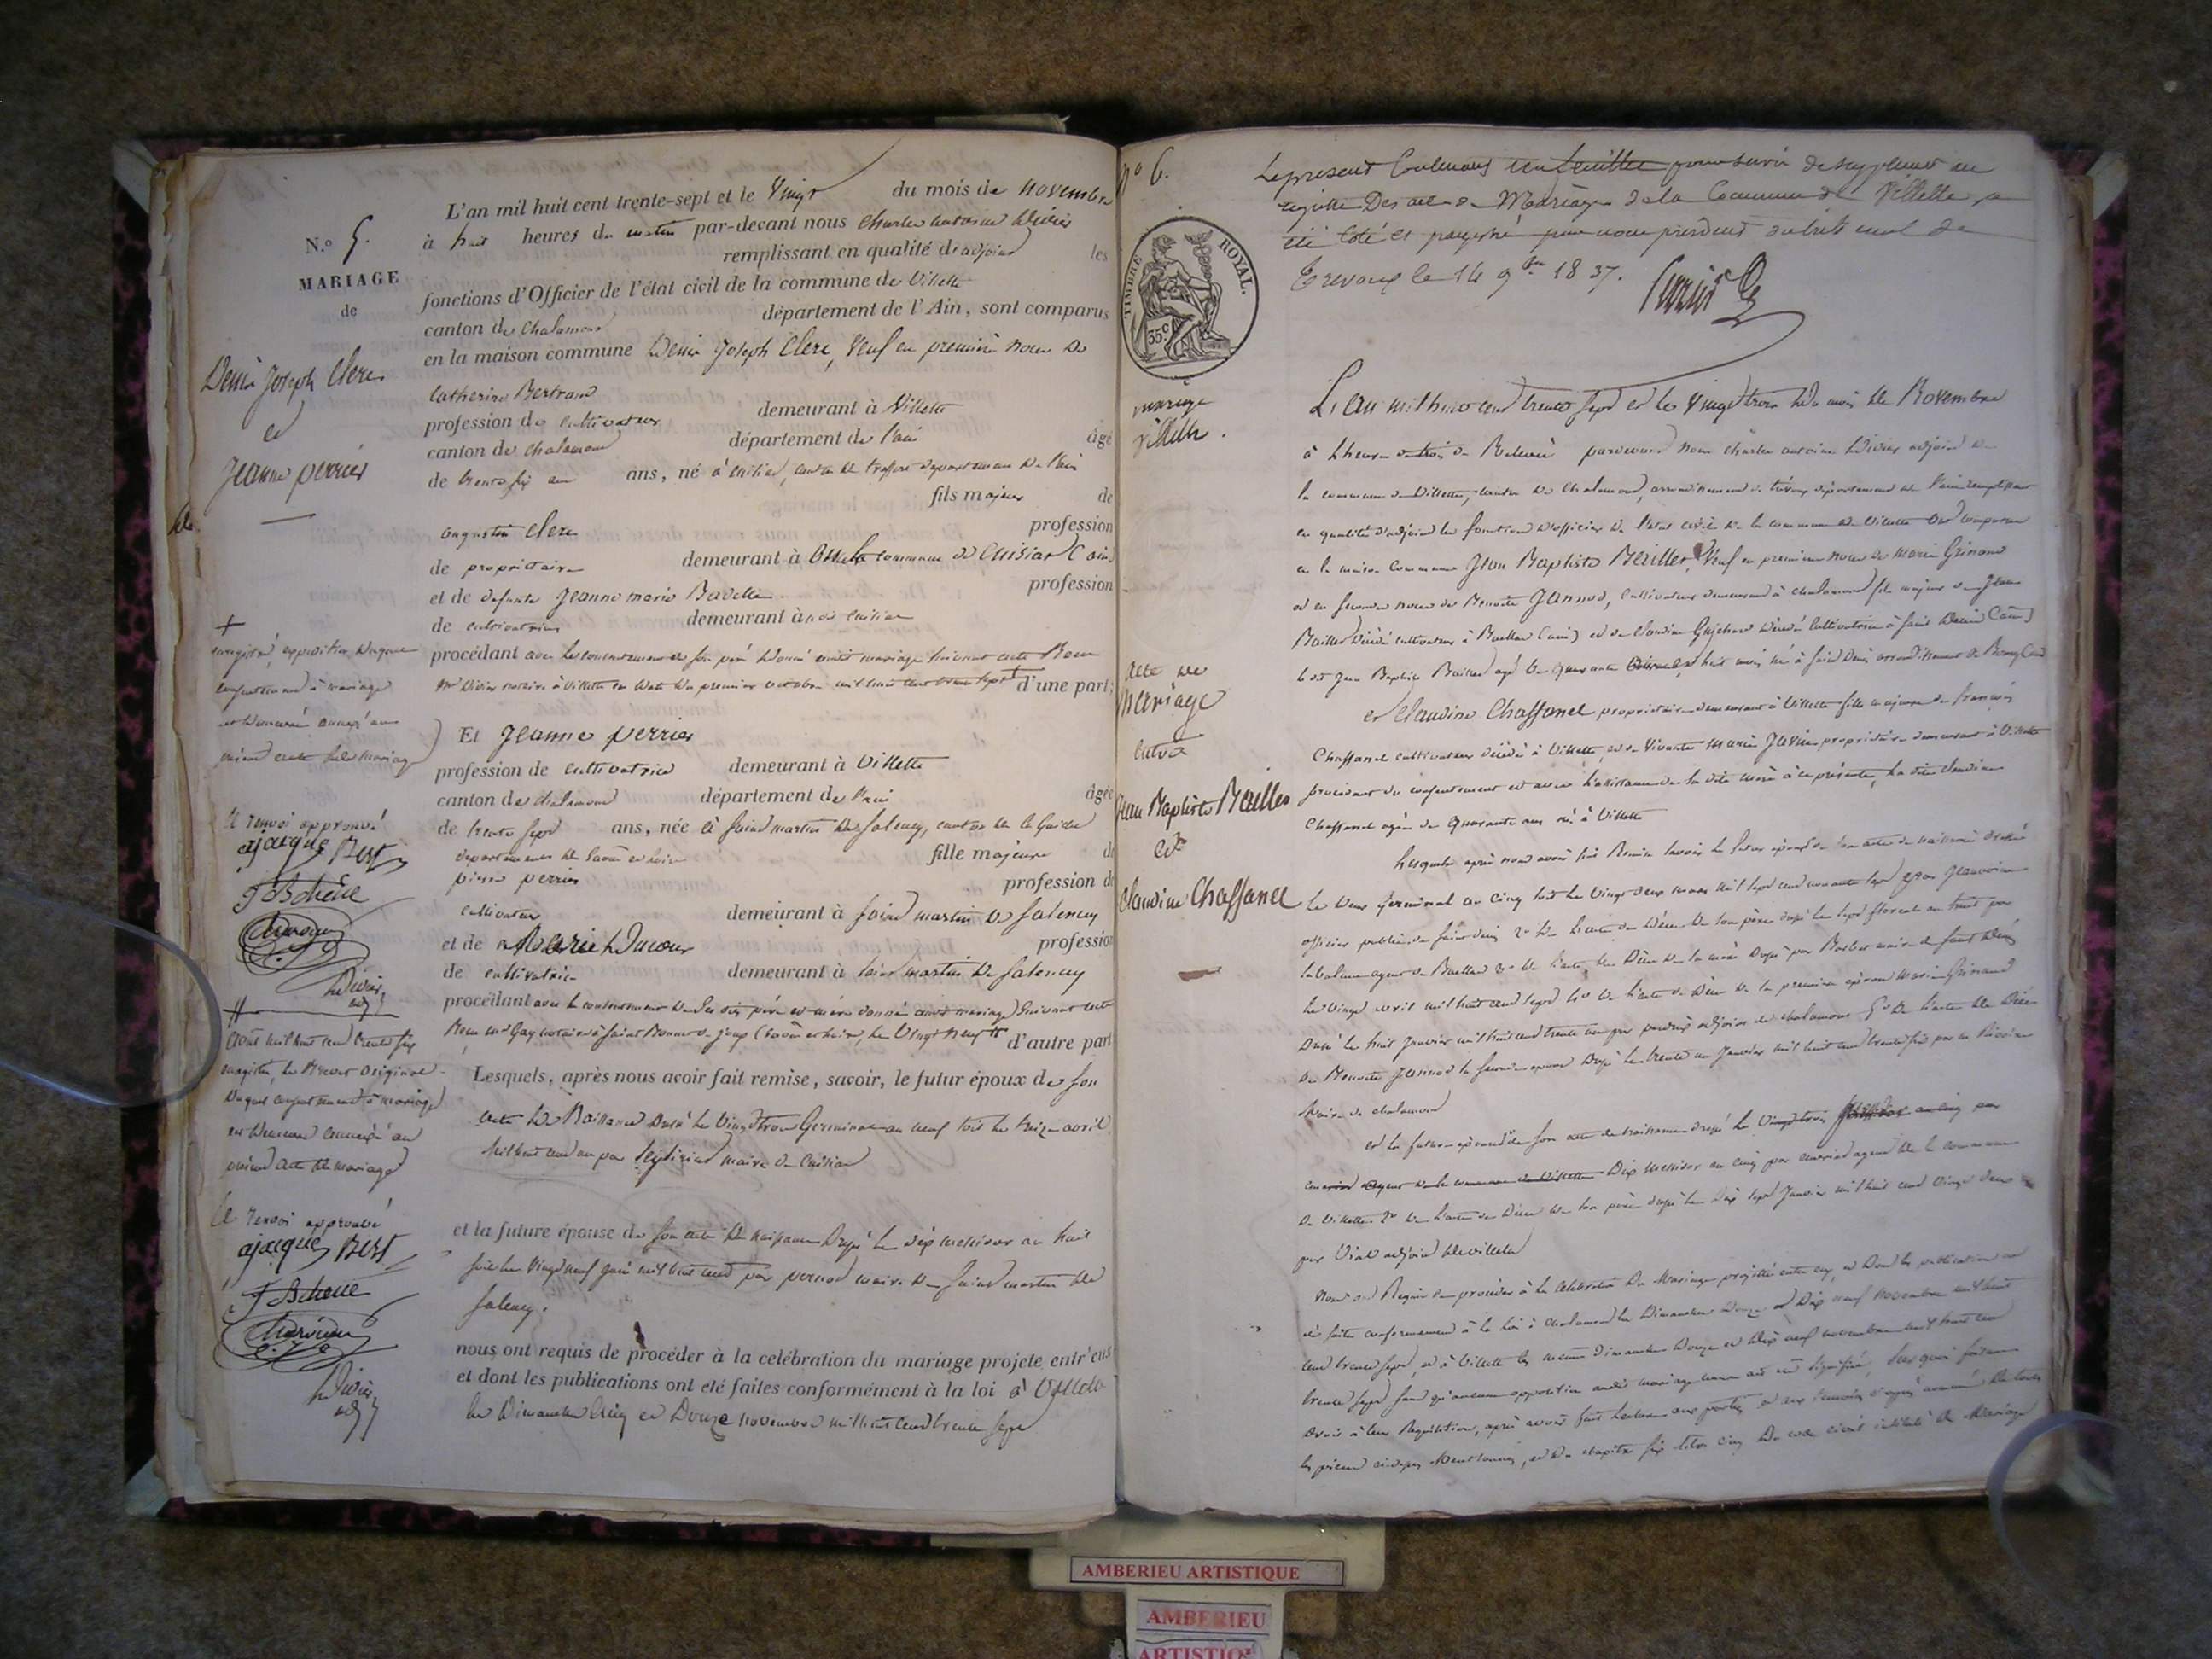 N.o 5.
MARIAGE
de
Denis Joseph Clerc
et
Jeanne perrier
L'an mil huit cent trente-sept et le vingt du mois de novembre
à huit heures du matin par-devant nous Charles antoine Divier
remplissant en qualité d'adjoint les
fonctions d'Officier de l'état civil de la commune de Villette
canton de Chalamont département de l'Ain, sont comparus
en la maison commune Denis Joseph Clerc, Veuf en premiere noce de
Catherine Bertrand
profession de cultivateur demeurant à Villette
canton de Chalamont département de l'ain âgé
de trente six ans ans, né à Cuisiat, canton de treffort département de l'ain
fils majeur de
augustin Clerc profession
de propriétaire demeurant à commune de Cuisiat (ain)
et de defunte Jeanne marie profession
de cultivatrice demeurant à
procédant avec le consentement de son père donné suivant acte Reçu
Mr Divier notaire à Villette en date du premier octobre mil huit cent trente sept d'une part;
Et Jeanne perrier
profession de cultivatrice demeurant à Villette
canton de chalamont département de l'ain âgée
de trente sept ans, née à saint martin de Salency, canton de la Guiche
département de Saône et Loire fille majeure de
pierre perrier profession de
cultivateur demeurant à saint martin de Salency
et de Marie Ducour profession
de cultivatrice demeurant à saint martin de Salency
procédant avec le consentement de ses dits père et mère donné suivant acte
Reçu Mr Gay notaire à Saint Bonnet de joux (Saône et Loire) le Vingt neuf d'autre part
Lesquels, après nous avoir fait remise, savoir, le futur époux de son
acte de Naissance Dressé le Vingt trois Germinal an neuf soit le treize avril
mil huit cent un par maire de Cuisiat
et la future épouse de son acte de naissance Dressé le dix messidor an huit
soit le Vingt neuf juin mil huit cent par maire de saint martin de
Salency.
nous ont requis de procéder à la celébration du mariage projeté entr'eux
et dont les publications ont été faites conformément à la loi à Villette
les Dimanches Cinq et Douze novembre mil huit cent trente sept
+
enregistré, expédition duquel
consentement à mariage
est demeurée annexé au
présent acte de mariage
le renvoi approuvé
ajacques Bert
Divier
adj
#
août mil huit cent trente six
enregistré, le Brevet original
Duquel consentement à mariage
est demeuré annexé au
présent acte de mariage
le renvoi approuvé
ajacques Bert
Divier
adj
No 6.
Le present Contenant un feuillet pour servir de supplement au
registre Des actes de Mariage de la Commune de Villette, a
été Coté et paraphé par nous president du tribunal de
Trevoux le 14 9bre 1837.
TIMBRE ROYAL.
35c
mariage
villette.
acte de
Mariage
entre
Jean Baptiste Bailler
et
Claudine Chaffanel
L'an mil huit cent trente sept et le Vingt trois du mois de Novembre
à l'heure de trois de Relevée pardevant Nous Charles antoine Divier adjoint de
la commune de Villette, canton de Chalamont, arrondissement de trévoux département de l'ain remplissant
en qualité d'adjoint les fonctions d'officier de l'état civil de la commune de Villette ont comparu
en la maison Commune Jean Baptiste Bailler, Veuf en première noce de marie Grinand
et en seconde noce de Benoite Jannod, Cultivateur demeurant à chalamont fils majeur de Jean
Bailler Décédé cultivateur à Buellas (ain) et de Claudine Décédé Cultivatrice à saint Denis (ain)
le dit Jean Baptiste Bailler agé de quarante huit mois né à saint Denis arrondissement de Bourg (ain)
et Claudine Chaffanel propriétaire demeurant à Villette fille majeure de françois
Chaffanel cultivateur décédé à Villette, et de Vivante Marie propriétaire demeurant à Villette
procédant du consentement et avec l'assistance de sa dite mère à ce présente, la dite Claudine
Chaffanel agée de Quarante ans né à Villette
Lesquels après nous avoir fait Remise savoir le futur époux de son acte de naissance dressé
le deux Germinal an Cinq soit le Vingt deux mars mil sept cent nonante sept par
officier public de saint denis 2o de l'acte de Décès de son père dressé le sept floréal an huit par
agent de Buellas 3o de l'acte de Décès de sa mère Dressé par maire de saint Denis
le Vingt avril mil huit cent sept 4o de l'acte de Décès de sa première épouse Marie Grinand
Dressé le huit Janvier mil huit cent trente un par adjoint de chalamont 5o de l'acte de Décès
de Benoite Jannod sa seconde épouse Dressé le trente un Janvier mil huit cent trente six par
Maire de chalamont
et la future épouse de son acte de naissance dressé le Vingt trois an cinq par
agent de la commune de Villette Dix Messidor an cinq par agent de la commune
de Villette 2o de l'acte de Décès de son père dressé le Dix sept Janvier mil huit cent Vingt deux
par adjoint de villette
Nous ont Requis de procéder à la Célébration Du Mariage projetté entre eux, et Dont les publications ont
été faites conformement à la loi à chalamont les Dimanches Douze et Dix neuf Novembre mil huit
cent trente sept, et à Villette les mêmes Dimanches Douze et Dix neuf novembre mil huit cent
trente sept sans qu'aucune opposition audit mariage nous ait été signifiée, faisant
Droit à leur Requisition, après avoir fait lecture aux parties et aux témoins de toutes
les pièces ci dessus Mentionnées, et du chapitre six titre cinq Du code civil intitulé du Mariage
AMBERIEU ARTISTIQUE
AMBERIEU
ARTISTIQUE